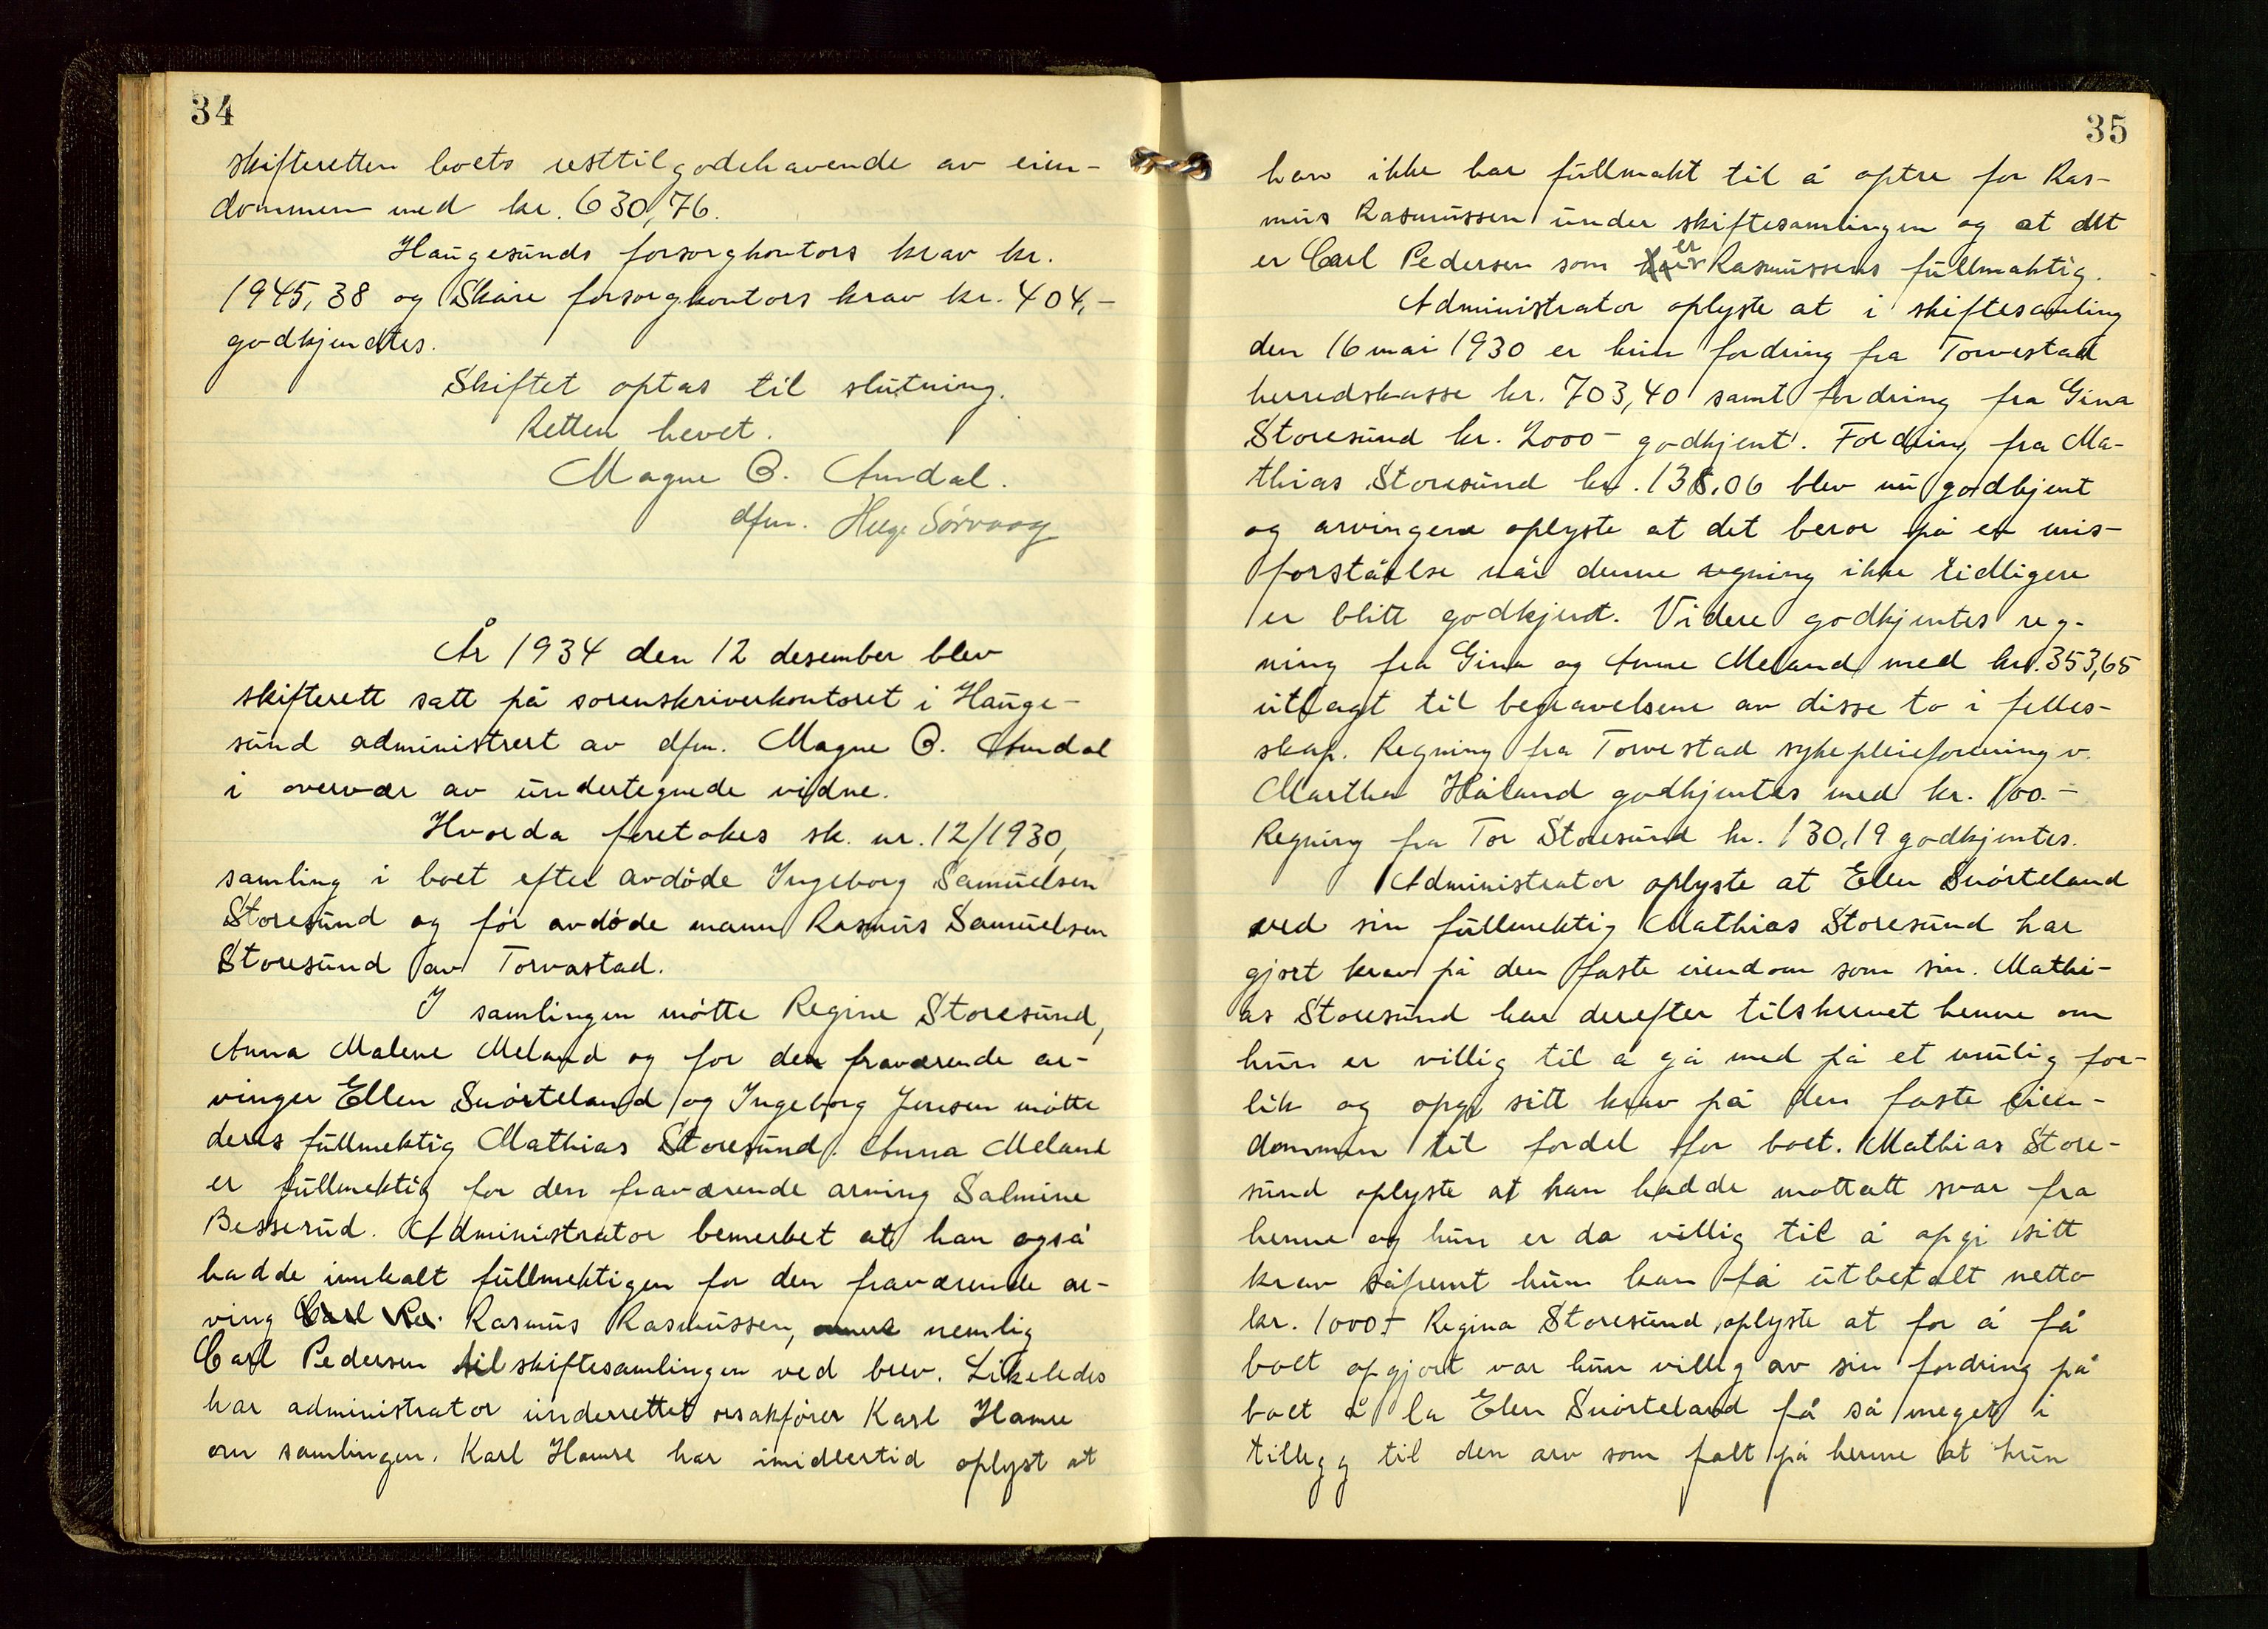 34
skifteretten boets resttilgodehavende av eien-
dommen med kr. 630,76.
Haugesunds forsorgkontors krav kr.
1945,38 og Skåre forsorgkontors krav kr. 404,-
godkjendtes.
Skiftet optas til slutning.
Retten hevet.
Magne B. Aundal.
dfm. Helge Sørvaag
År 1934 den 12 desember blev
skifterett satt på sorenskriverkontoret i Hauge-
sund administrert av dfm. Magne B. Aundal
i overvær av undertegnede vidne.
Hvorda foretokes sk. nr. 12/1930,
samling i boet efter avdøde Ingeborg Samuelsen
Storesund og før avdøde mann Rasmus Samuelsen
Storesund av Torvastad.
I samlingen møtte Regine Storesund,
Anna Malene Meland og for den fraværende ar-
vinger Ellen Snørteland og Ingeborg Jensen møtte
deres fullmektig Mathias Storesund. Anna Meland
er fullmektig for den fraværende arving Salmine
Besserud. Administrator bemerket at han også
hadde innkalt fullmektigen for den fraværende ar-
ving Carl Ra. Rasmus Rasmussen, nemlig
Carl Pedersen til skiftesamlingen ved brev. Likeledes
har administrator underrettet orsakfører Karl Hamre
om samlingen. Karl Hamre har imidlertid oplyst at
35
han ikke har fullmakt til å optre for Ras-
mus Rasmussen under skiftesamlingen og at det
er Carl Pedersen som er Rasmussens fullmaktig.
Administrator oplyste at i skiftesamling
den 16 mai 1930 er kun fordring fra Torvestad
herredskasse kr. 703,40 samt fordring fra Gina
Storesund kr. 2000- godkjent. Fordring fra Ma-
thias Storesund kr. 138,06 blev nu godkjent
og arvingene oplyste at det beror på en mis-
forståelse når denne regning ikke tidligere
er blitt godkjent. Videre godkjentes reg-
ning fra Gina og Anne Meland med kr. 353,65
utlagt til begravelsene av disse to i felles-
skap. Regning fra Torvestad sykepleieforening v.
Martha Håland godkjentes med kr. 100.-
Regning fra Tor Storesund kr. 130,19 godkjentes.
Administrator oplyste at Elen Snørteland
ved sin fullmektig Mathias Storesund har
gjort krav på den faste eiendom som sin. Mathi-
as Storesund har derefter tilskrevet henne om
hun er villig til å gå med på et mulig for-
lik og opgi sitt krav på den faste eien-
dommen til fordel for boet. Mathias Store-
sund oplyste at han hadde mottatt svar fra
henne og hun er da villig til å opgi sitt
krav såfremt hun kan få utbetalt netto
kr. 1000.- Regina Storesund oplyste at for å få
boet opgjort var hun villig av sin fordring på
boet å la Elen Snørteland få så meget i
tillegg til den arv som falt på henne at hun